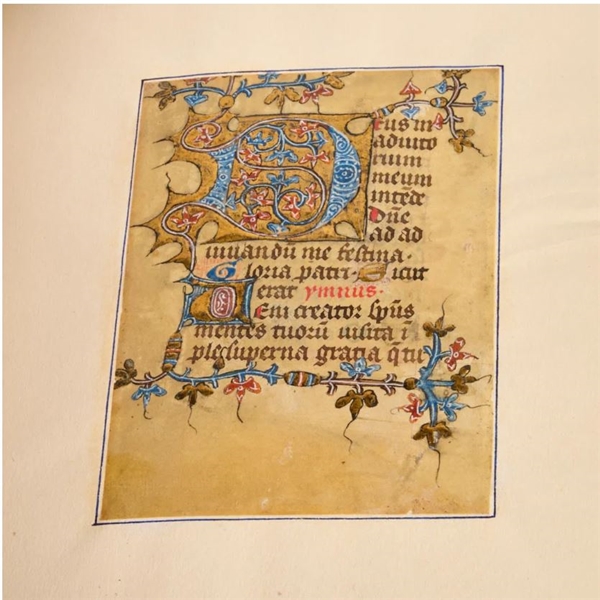 Deus in
adiuto
rium
meum
intēde
Dñe
ad ad
iuuandū me festina·
Gloria patri· Sicut
erat ymnus·
Veni creator sp̄us
mentes tuorū uisita i
plesuperna gratia q̄ tu